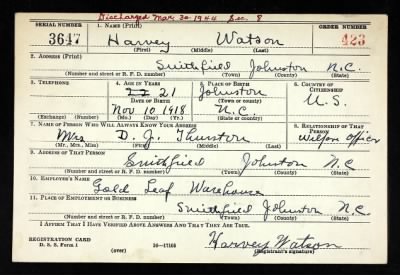 Discharged Mar 30 1944 Sec. 8
SERIAL NUMBER 1. NAME (Print) ORDER NUMBER
3647 Harvey Watson 423
(First) (Middle) (Last)
2. ADDRESS (Print)
Smithfield Johnston N.C.
(Number and street or R. F. D. number) (Town) (County) (State)
3. TELEPHONE 4. AGE IN YEARS 5. PLACE OF BIRTH 6. COUNTRY OF CITIZENSHIP
22 21 Johnston
DATE OF BIRTH (Town or county) U.S.
Nov 10 1918 N.C.
(Exchange) (Number) (Mo.) (Day) (Yr.) (State or country)
7. NAME OF PERSON WHO WILL ALWAYS KNOW YOUR ADDRESS 8. RELATIONSHIP OF THAT PERSON
Mrs D. J. Thurston Welfare Officer
(Mr., Mrs., Miss) (First) (Middle) (Last)
9. ADDRESS OF THAT PERSON
Smithfield Johnston N C
(Number and street or R. F. D. number) (Town) (County) (State)
10. EMPLOYER'S NAME
Gold Leaf Warehouse
11. PLACE OF EMPLOYMENT OR BUSINESS
Smithfield Johnston N.C.
(Number and street or R. F. D. number) (Town) (County) (State)
I AFFIRM THAT I HAVE VERIFIED ABOVE ANSWERS AND THAT THEY ARE TRUE.
REGISTRATION CARD
D. S. S. Form 1 (over) 16—17105 Harvey Watson
(Registrant's signature)